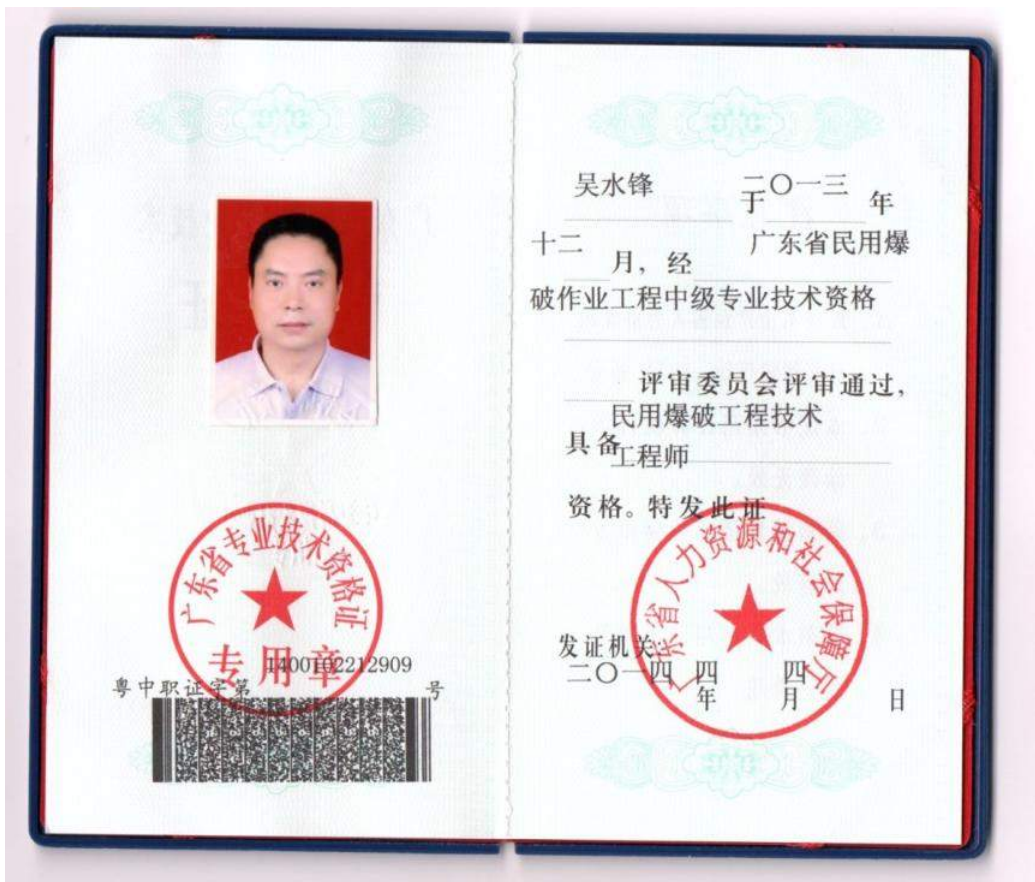 广东省专业技术资格证
专用章
1400102212909
粤中职证字第 号
吴水锋 于二〇一三年
十二月，经广东省民用爆
破作业工程中级专业技术资格
评审委员会评审通过，
民用爆破工程技术
具备工程师
资格。特发此证
广东省人力资源和社会保障厅
发证机关
二〇一四年四月四日